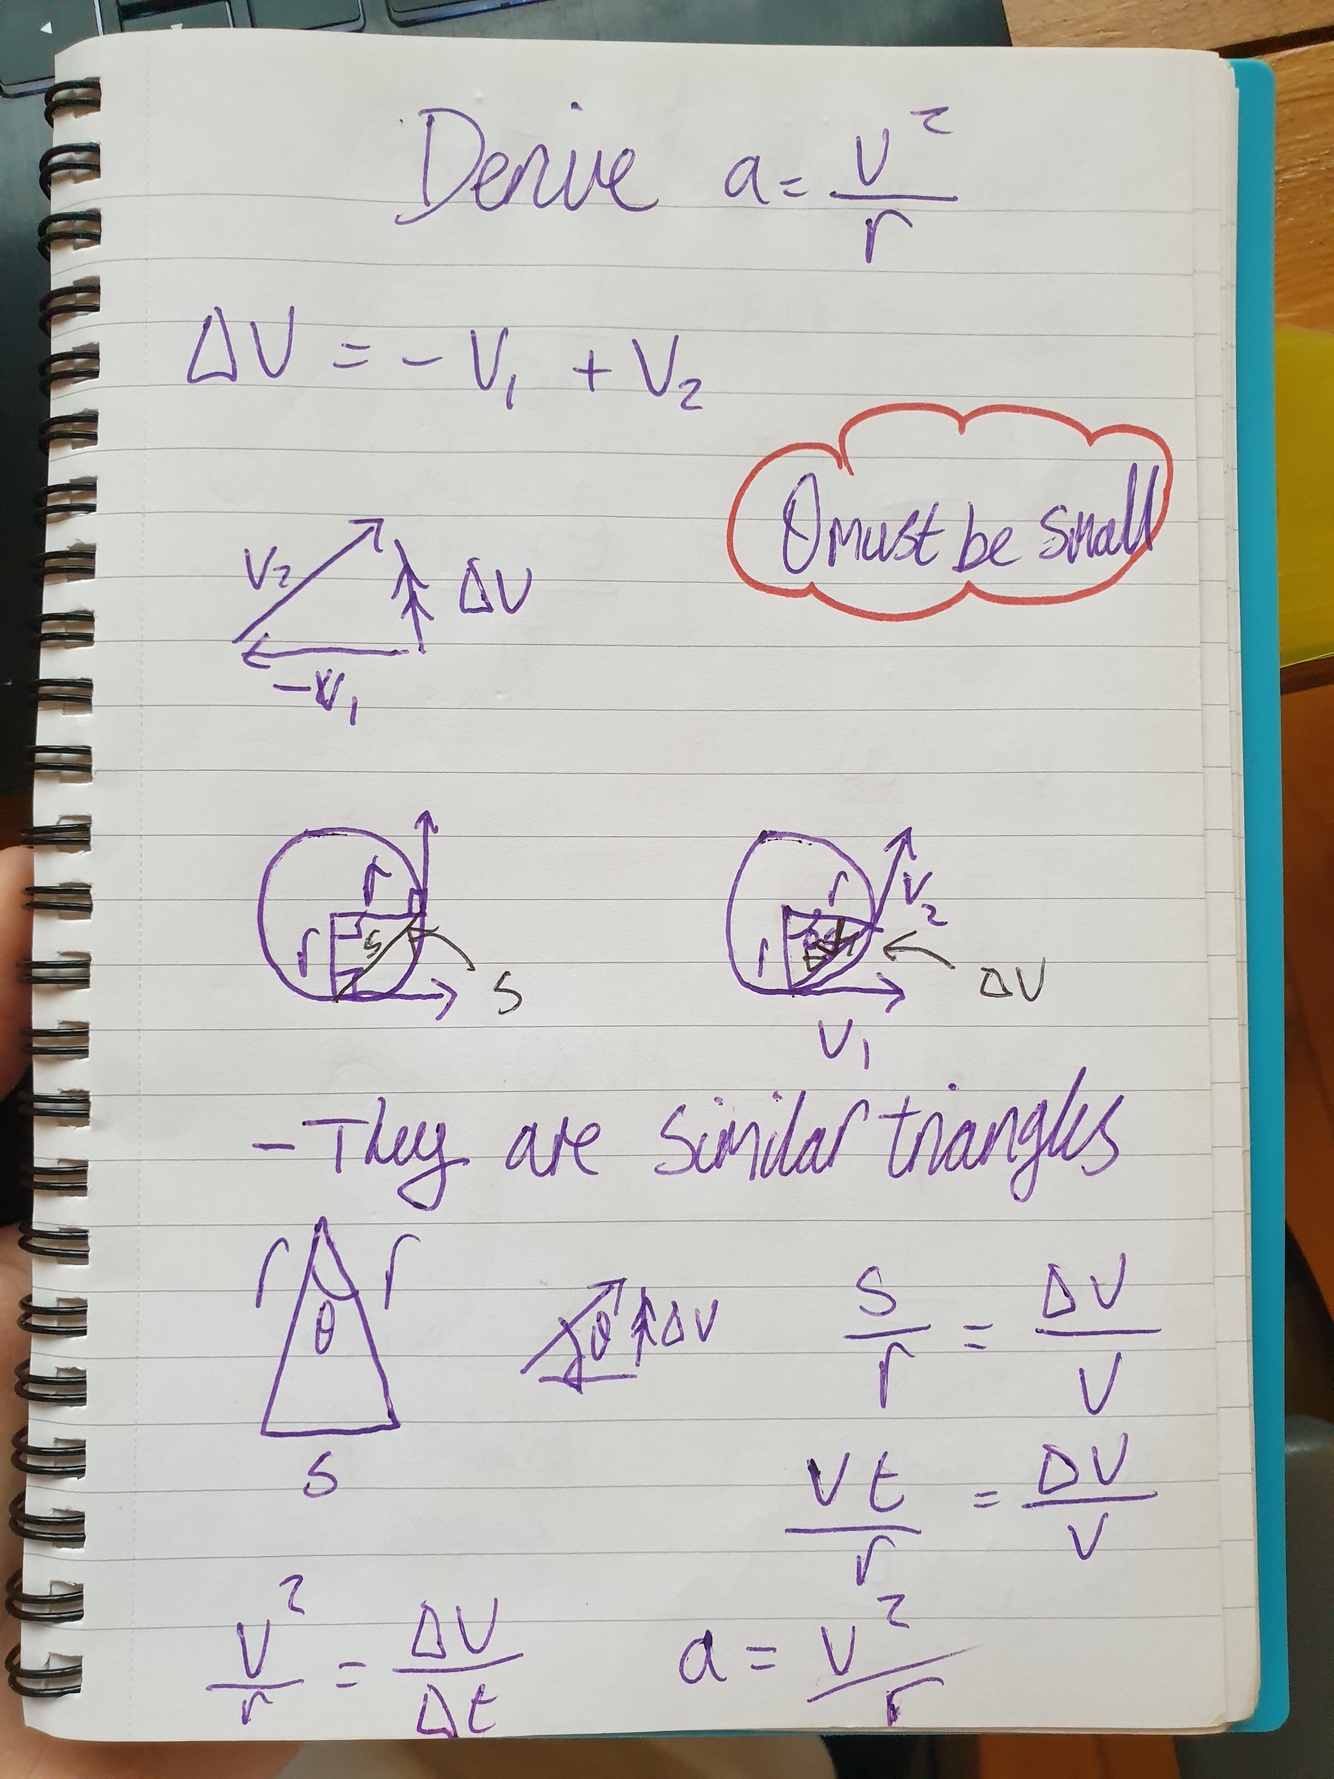 Derive a = v²/r
ΔV = -V₁ + V₂
θ must be small
V₂
ΔV
-V₁
r
r
s
s
r
r
V₂
ΔV
V₁
- They are similar triangles
r
r
θ
s
θ
ΔV
s/r = ΔV/V
Vt/r = ΔV/V
V²/r = ΔV/Δt
a = V²/r